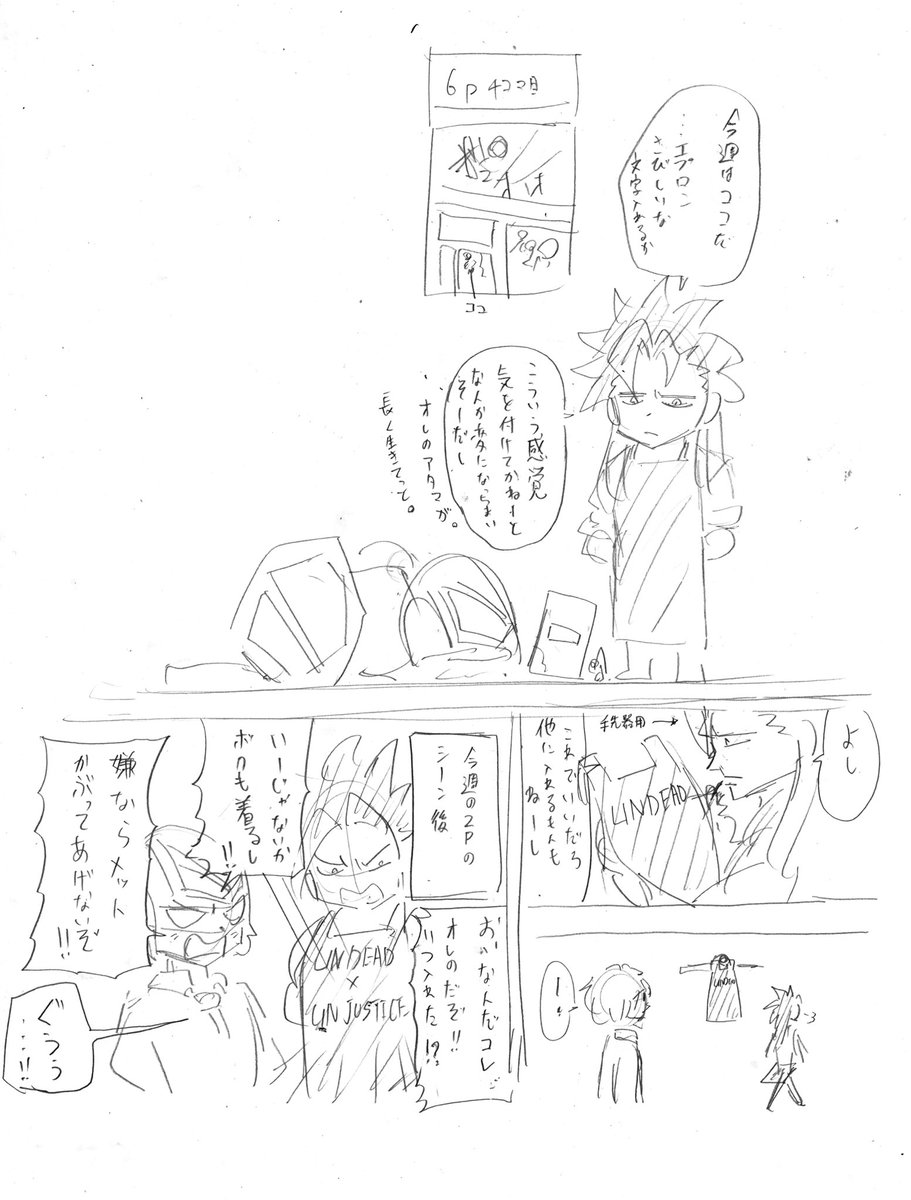 6P 4コマ目
ココ
今週はココだ
…エプロン
さびしいな
文字入れるか
こういう感覚
気を付けてかねーと
なんか駄になっちまい
そーだし
・オレのアタマが。
長く生きてっと。
よし
手洗器用→
UNDEAD
これでいいだろ
他に入れるもんも
ねーし
UNDEAD
!
今週の2Pの
シーン後
おいなんだコレ
オレのだぞ!!
いつ入れた!?
UNDEAD
×
UNJUSTICE
いーじゃないか
ボクも着るし
!!
嫌ならメット
かぶってあげないぞ
!!
ぐうぅ
…!!